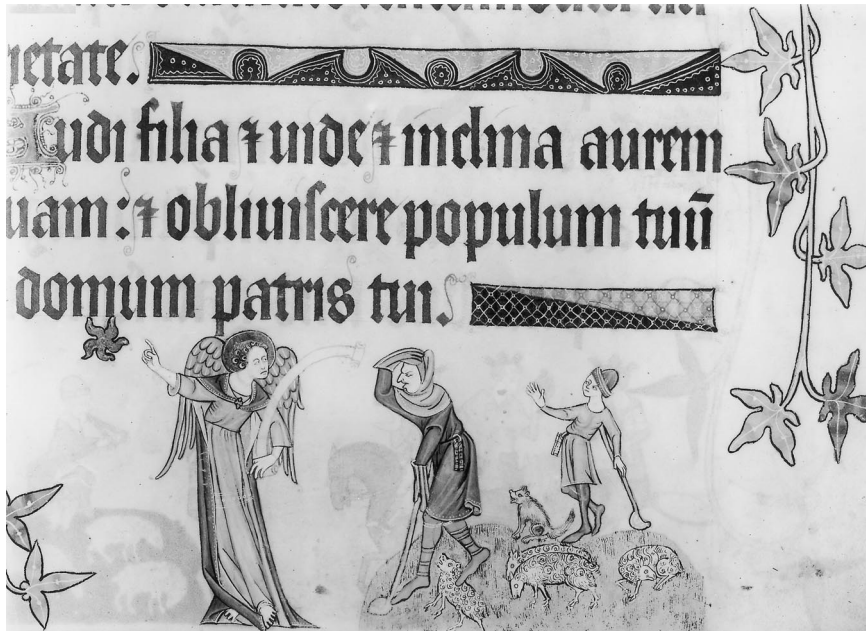 ietate.
Audi filia ⁊ uide ⁊ inclina aurem
uam: ⁊ obliuiscere populum tuū
domum patris tui.